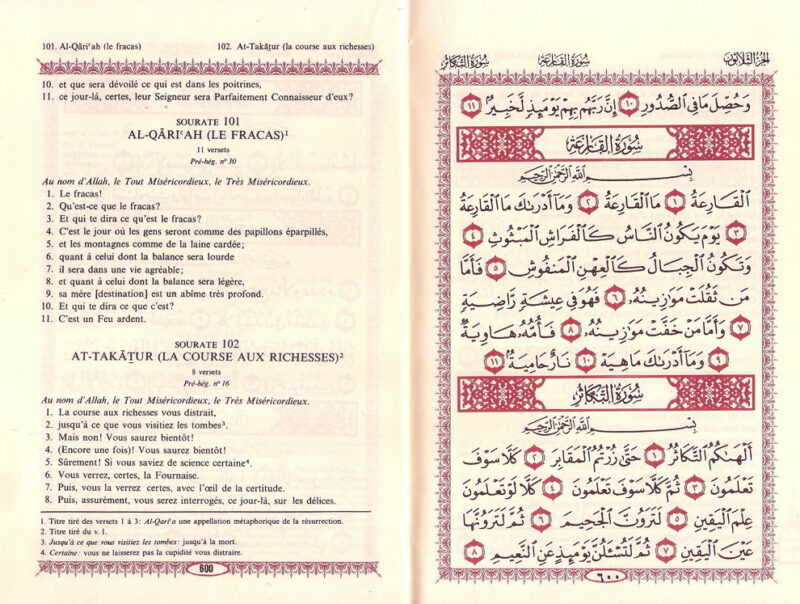 101. Al-Qāriʿah (le fracas)
102. At-Takāṯur (la course aux richesses)
10. et que sera dévoilé ce qui est dans les poitrines,
11. ce jour-là, certes, leur Seigneur sera Parfaitement Connaisseur d'eux?
SOURATE 101
AL-QĀRIʿAH (LE FRACAS)¹
11 versets
Pré-hég. n° 30
Au nom d'Allah, le Tout Miséricordieux, le Très Miséricordieux.
1. Le fracas!
2. Qu'est-ce que le fracas?
3. Et qui te dira ce qu'est le fracas?
4. C'est le jour où les gens seront comme des papillons éparpillés,
5. et les montagnes comme de la laine cardée;
6. quant à celui dont la balance sera lourde
7. il sera dans une vie agréable;
8. et quant à celui dont la balance sera légère,
9. sa mère [destination] est un abîme très profond.
10. Et qui te dira ce que c'est?
11. C'est un Feu ardent.
SOURATE 102
AT-TAKĀṮUR (LA COURSE AUX RICHESSES)²
8 versets
Pré-hég. n° 16
Au nom d'Allah, le Tout Miséricordieux, le Très Miséricordieux.
1. La course aux richesses vous distrait,
2. jusqu'à ce que vous visitiez les tombes³.
3. Mais non! Vous saurez bientôt!
4. (Encore une fois)! Vous saurez bientôt!
5. Sûrement! Si vous saviez de science certaine⁴.
6. Vous verrez, certes, la Fournaise.
7. Puis, vous la verrez certes, avec l'œil de la certitude.
8. Puis, assurément, vous serez interrogés, ce jour-là, sur les délices.
1. Titre tiré des versets 1 à 3: Al-Qari'a une appellation métaphorique de la résurrection.
2. Titre tiré du v. 1.
3. Jusqu'à ce que vous visitiez les tombes: jusqu'à la mort.
4. Certaine: vous ne laisserez pas la cupidité vous distraire.
600
الجزء الثلاثون
سورة القارعة
سورة التكاثر
وَحُصِّلَ مَا فِي ٱلصُّدُورِ ١٠ إِنَّ رَبَّهُم بِهِمْ يَوْمَئِذٍ لَّخَبِيرٌۢ ١١
سُورَةُ القَارِعَةِ
بِسْمِ ٱللَّهِ ٱلرَّحْمَٰنِ ٱلرَّحِيمِ
ٱلْقَارِعَةُ ١ مَا ٱلْقَارِعَةُ ٢ وَمَآ أَدْرَىٰكَ مَا ٱلْقَارِعَةُ
٣ يَوْمَ يَكُونُ ٱلنَّاسُ كَٱلْفَرَاشِ ٱلْمَبْثُوثِ ٤
وَتَكُونُ ٱلْجِبَالُ كَٱلْعِهْنِ ٱلْمَنفُوشِ ٥ فَأَمَّا
مَن ثَقُلَتْ مَوَٰزِينُهُۥ ٦ فَهُوَ فِي عِيشَةٍ رَّاضِيَةٍ
٧ وَأَمَّا مَنْ خَفَّتْ مَوَٰزِينُهُۥ ٨ فَأُمُّهُۥ هَاوِيَةٌ
٩ وَمَآ أَدْرَىٰكَ مَا هِيَهْ ١٠ نَارٌ حَامِيَةٌۢ ١١
سُورَةُ التَّكَاثُرِ
بِسْمِ ٱللَّهِ ٱلرَّحْمَٰنِ ٱلرَّحِيمِ
أَلْهَىٰكُمُ ٱلتَّكَاثُرُ ١ حَتَّىٰ زُرْتُمُ ٱلْمَقَابِرَ ٢ كَلَّا سَوْفَ
تَعْلَمُونَ ٣ ثُمَّ كَلَّا سَوْفَ تَعْلَمُونَ ٤ كَلَّا لَوْ تَعْلَمُونَ
عِلْمَ ٱلْيَقِينِ ٥ لَتَرَوُنَّ ٱلْجَحِيمَ ٦ ثُمَّ لَتَرَوُنَّهَا
عَيْنَ ٱلْيَقِينِ ٧ ثُمَّ لَتُسْـَٔلُنَّ يَوْمَئِذٍ عَنِ ٱلنَّعِيمِ ٨
٦٠٠